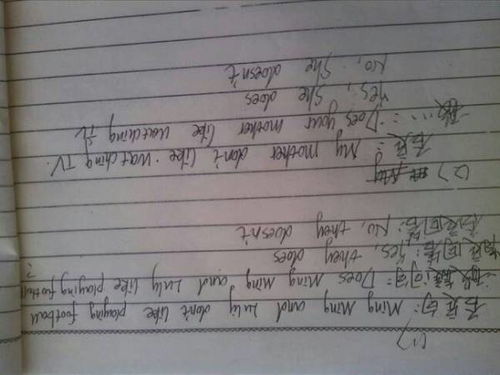 (1)
否定句: Ming Ming and Luly don't like playing football
一般疑问: Does Ming Ming and Luly like playing football?
肯定回答: Yes, they does
否定回答: No, they doesn't
(2)
否定: My mother don't like watching TV.
一般……: Does your mother like watching
Yes, she does
No, she doesn't